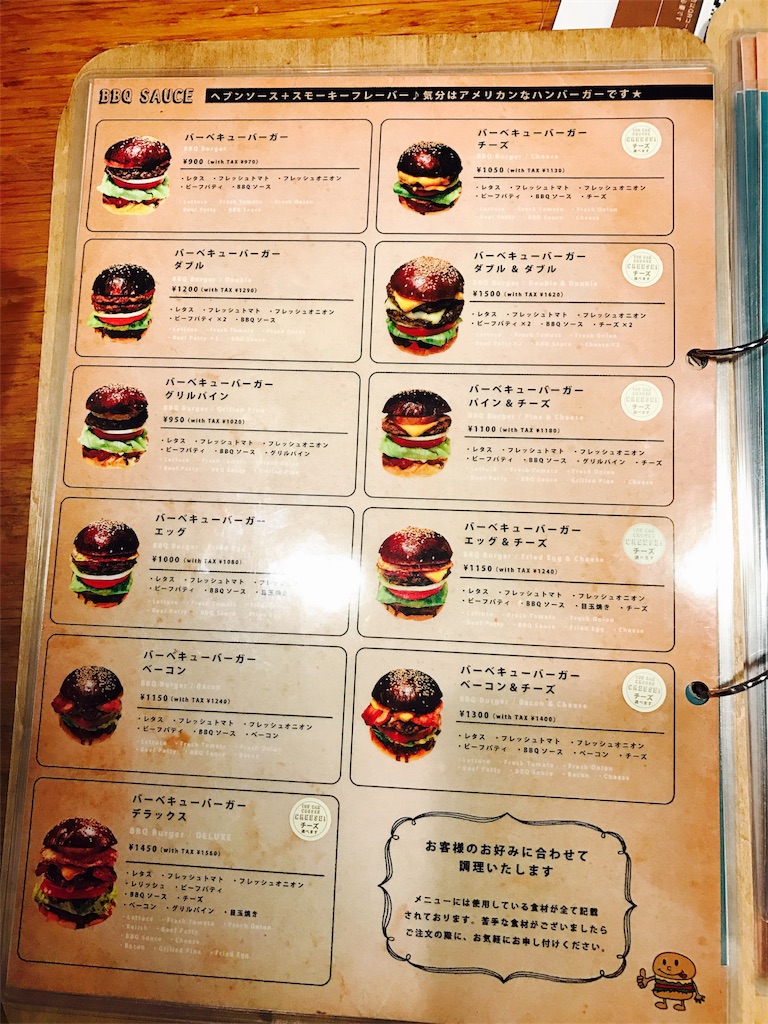 BBQ SAUCE
ヘブンソース+スモーキーフレーバー♪気分はアメリカンなハンバーガーです★
バーベキューバーガー
BBQ Burger
¥900 (with TAX ¥970)
・レタス ・フレッシュトマト ・フレッシュオニオン
・ビーフパティ ・BBQソース
・Lettuce ・Fresh Tomato ・Fresh Onion
・Beef Patty ・BBQ Sauce
バーベキューバーガー
チーズ
BBQ Burger / Cheese
¥1050 (with TAX ¥1130)
・レタス ・フレッシュトマト ・フレッシュオニオン
・ビーフパティ ・BBQソース ・チーズ
・Lettuce ・Fresh Tomato ・Fresh Onion
・Beef Patty ・BBQ Sauce ・Cheese
YOU CAN
CHOOSE
CHEESE!
チーズ
選べます
バーベキューバーガー
ダブル
BBQ Burger / Double
¥1200 (with TAX ¥1290)
・レタス ・フレッシュトマト ・フレッシュオニオン
・ビーフパティ ×2 ・BBQソース
・Lettuce ・Fresh Tomato ・Fresh Onion
・Beef Patty ×2 ・BBQ Sauce
バーベキューバーガー
ダブル & ダブル
BBQ Burger / Double & Double
¥1500 (with TAX ¥1620)
・レタス ・フレッシュトマト ・フレッシュオニオン
・ビーフパティ ×2 ・BBQソース ・チーズ ×2
・Lettuce ・Fresh Tomato ・Fresh Onion
・Beef Patty ×2 ・BBQ Sauce ・Cheese ×2
YOU CAN
CHOOSE
CHEESE!
チーズ
選べます
バーベキューバーガー
グリルパイン
BBQ Burger / Grilled Pine
¥950 (with TAX ¥1020)
・レタス ・フレッシュトマト ・フレッシュオニオン
・ビーフパティ ・BBQソース ・グリルパイン
・Lettuce ・Fresh Tomato ・Fresh Onion
・Beef Patty ・BBQ Sauce ・Grilled Pine
バーベキューバーガー
パイン & チーズ
BBQ Burger / Pine & Cheese
¥1100 (with TAX ¥1180)
・レタス ・フレッシュトマト ・フレッシュオニオン
・ビーフパティ ・BBQソース ・グリルパイン ・チーズ
・Lettuce ・Fresh Tomato ・Fresh Onion
・Beef Patty ・BBQ Sauce ・Grilled Pine ・Cheese
YOU CAN
CHOOSE
CHEESE!
チーズ
選べます
バーベキューバーガー
エッグ
BBQ Burger / Fried Egg
¥1000 (with TAX ¥1080)
・レタス ・フレッシュトマト
・ビーフパティ ・BBQソース ・目玉焼き
・Lettuce ・Fresh Tomato
・Beef Patty ・BBQ Sauce
バーベキューバーガー
エッグ & チーズ
BBQ Burger / Fried Egg & Cheese
¥1150 (with TAX ¥1240)
・レタス ・フレッシュトマト ・フレッシュオニオン
・ビーフパティ ・BBQソース ・目玉焼き ・チーズ
・Lettuce ・Fresh Tomato ・Fresh Onion
・Beef Patty ・BBQ Sauce ・Fried Egg ・Cheese
YOU CAN
CHOOSE
CHEESE!
チーズ
選べます
バーベキューバーガー
ベーコン
BBQ Burger / Bacon
¥1150 (with TAX ¥1240)
・レタス ・フレッシュトマト ・フレッシュオニオン
・ビーフパティ ・BBQソース ・ベーコン
・Lettuce ・Fresh Tomato ・Fresh Onion
・Beef Patty ・BBQ Sauce ・Bacon
バーベキューバーガー
ベーコン & チーズ
BBQ Burger / Bacon & Cheese
¥1300 (with TAX ¥1400)
・レタス ・フレッシュトマト ・フレッシュオニオン
・ビーフパティ ・BBQソース ・ベーコン ・チーズ
・Lettuce ・Fresh Tomato ・Fresh Onion
・Beef Patty ・BBQ Sauce ・Bacon ・Cheese
YOU CAN
CHOOSE
CHEESE!
チーズ
選べます
バーベキューバーガー
デラックス
BBQ Burger / DELUXE
¥1450 (with TAX ¥1560)
・レタス ・フレッシュトマト ・フレッシュオニオン
・レリッシュ ・ビーフパティ
・BBQソース ・チーズ
・ベーコン ・グリルパイン ・目玉焼き
・Lettuce ・Fresh Tomato ・Fresh Onion
・Relish ・Beef Patty
・BBQ Sauce ・Cheese
・Bacon ・Grilled Pine ・Fried Egg
YOU CAN
CHOOSE
CHEESE!
チーズ
選べます
お客様のお好みに合わせて
調理いたします
メニューには使用している食材が全て記載
されております。苦手な食材がございましたら
ご注文の際に、お気軽にお申し付けください。